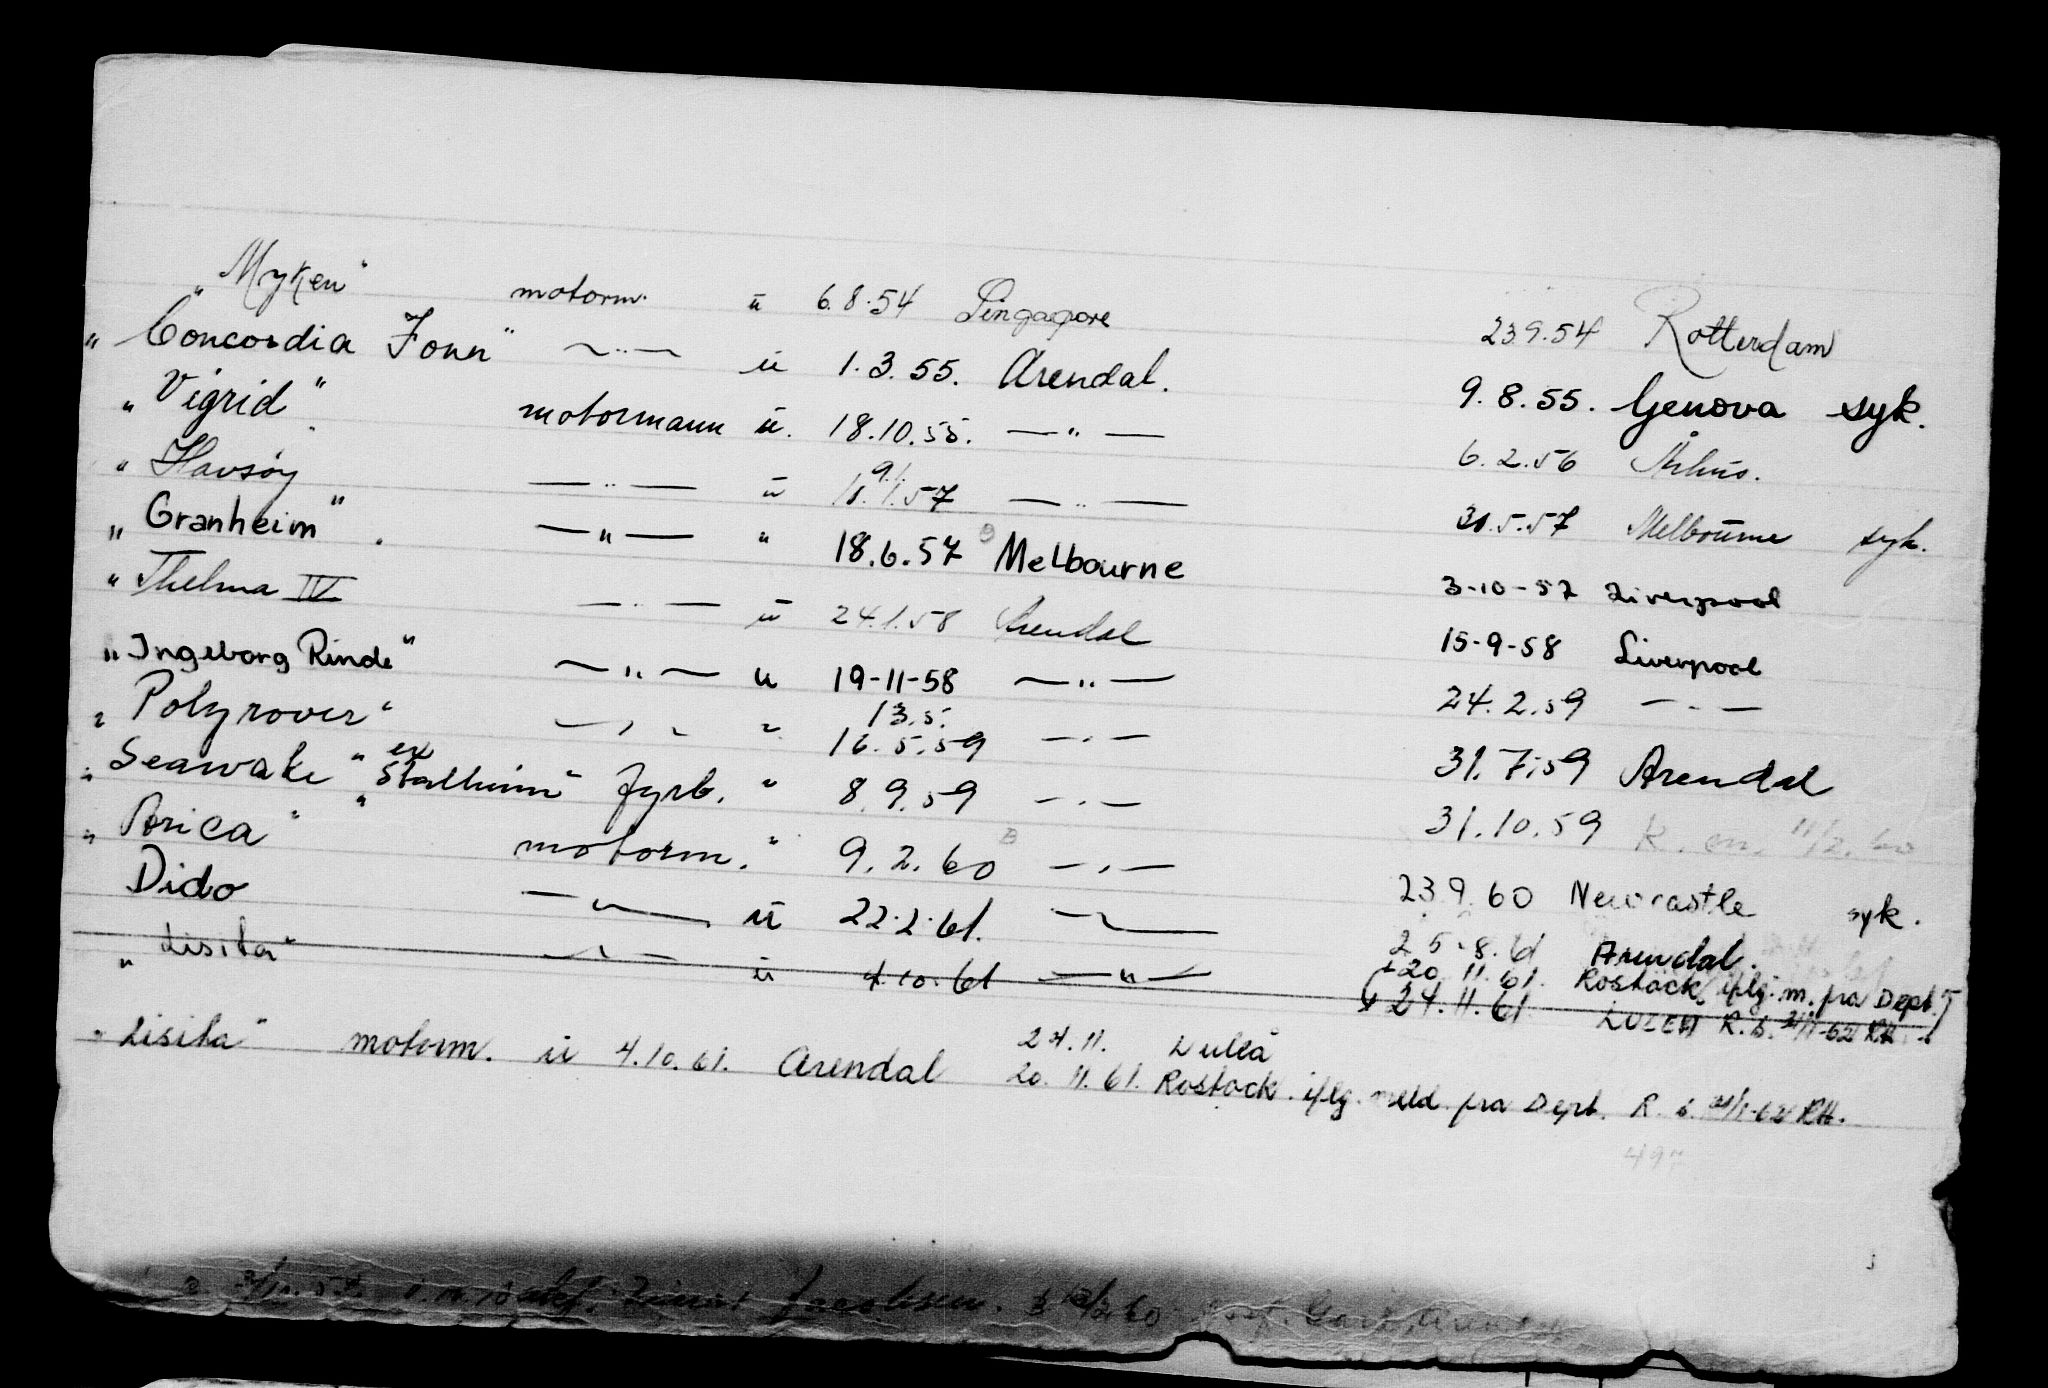 „Myken" motorm. u 6.8.54 Singapore 23.9.54 Rotterdam
„Concordia Fonn" —"— u 1.3.55. Arendal. 9.8.55. Genova syk.
„Vigrid" motormann u. 18.10.55. —"— 6.2.56 Århus.
„Havsøy" —"— u 11.1.57 —"— 31.5.57 Melbourne syk.
9/1.
„Granheim". —"— " 18.6.57 Melbourne 3-10-57 Liverpool
„Thelma IV —"— u 24.1.58 Arendal 15-9-58 Liverpool
„Ingeborg Rinde" —"— u 19-11-58 —"— 24.2.59 —"—
13.5.
„Polyrover" —"— " 16.5.59 —"— 31.7.59 Arendal
„Seawake" ex "Stalheim" fyrb. " 8.9.59 —"— 31.10.59 K. en. 11/2.60
„Arica" motorm. " 9.2.60 —"— 23.9.60 Newcastle syk.
Dido —"— u 22.2.61. —"— 25-8.61 Arendal.
„Lisita" —"— u 4.10.61 —"— 20.11.61. Rostock, iflg. m. fra Dept.
24.11.61 LULEÅ R. s. 31/1-62 RH.
„Lisita" motorm. u 4.10.61. Arendal 24.11. Luleå
20.11.61. Rostock. iflg. meld. fra Dept. R. s. 31/1-62 RH.
497
Jacobsen. 12/2.60